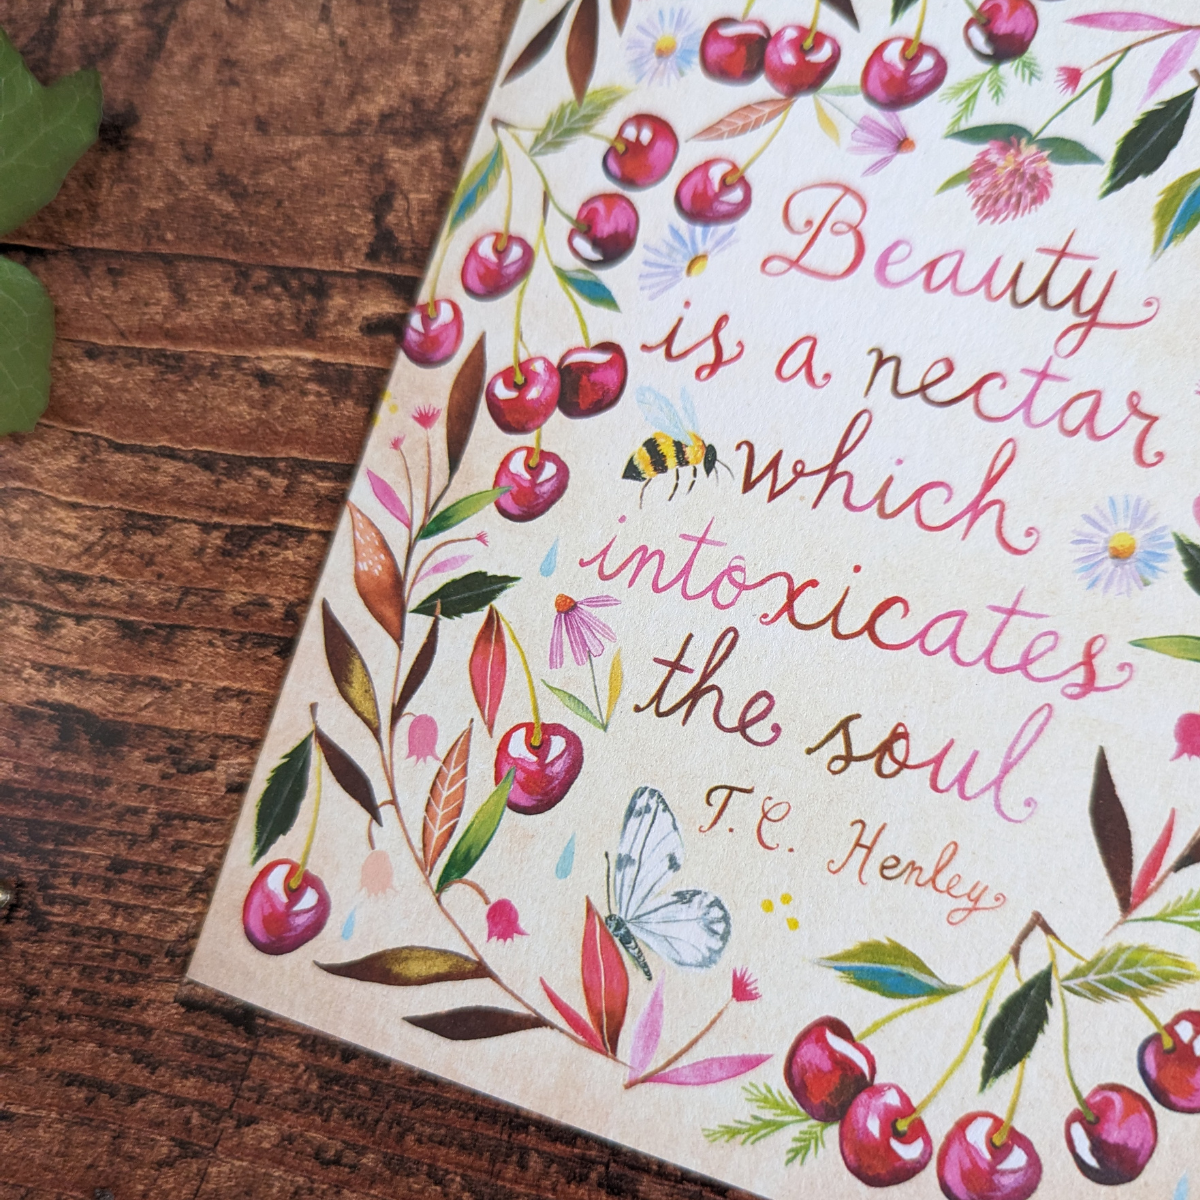 Beauty
is a nectar
which
intoxicates
the soul
T.C. Henley